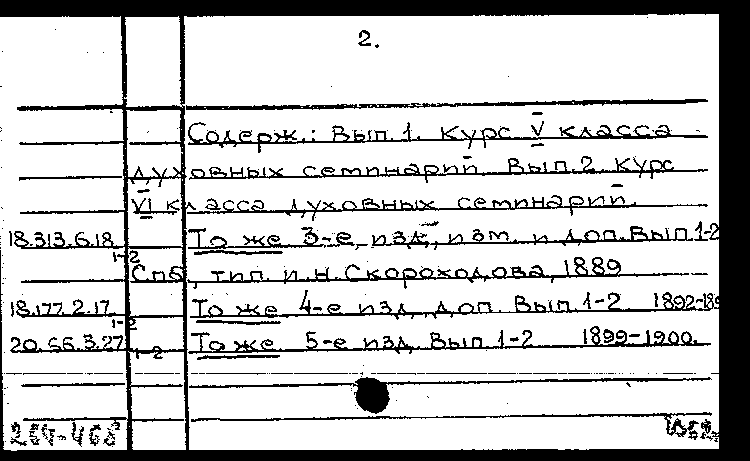 2.
Содерж.: Вып. 1. Курс V класса
духовных семинарий. Вып. 2. Курс
VI класса духовных семинарий.
18.313.6.18 1-2 То же 3-е, изд., изм. и доп. Вып. 1-2
Спб., тип. И.Н. Скороходова, 1889
18.177.2.17 1-2 То же 4-е изд. доп. Вып. 1-2 1892-
20.56.3.27 1-2 То же 5-е изд. Вып. 1-2 1899-1900.
264-468